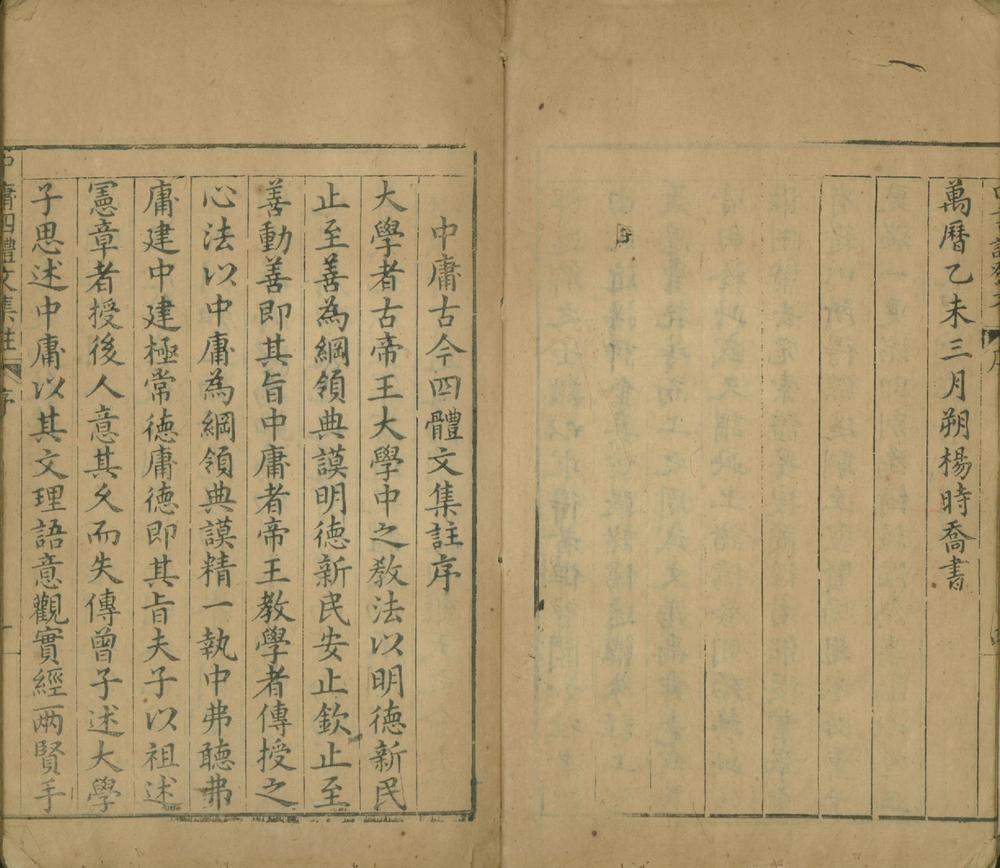 萬曆乙未三月朔楊時喬書
序
中庸古今四體文集註序
大學者古帝王大學中之敎法以明德新民
止至善為綱領典謨明德新民安止欽止至
善動善即其旨中庸者帝王教學者傳授之
心法以中庸為綱領典謨精一執中弗聽弗
庸建中建極常德庸德即其旨夫子以祖述
憲章者授後人意其久而失傳曾子述大學
子思述中庸以其文理語意觀實經兩賢手
中庸四體文集註 序 一